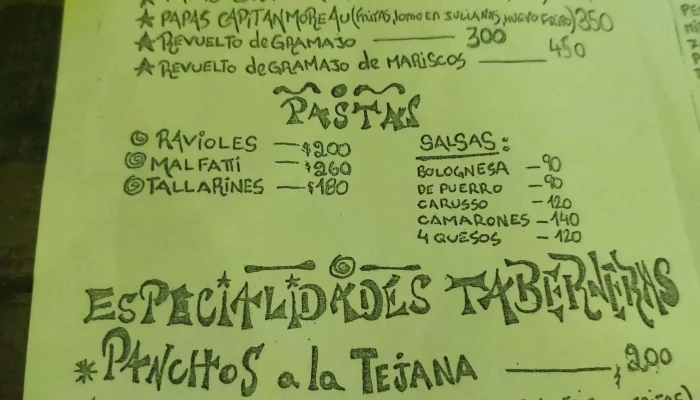 ★ PAPAS CAPITAN MOREAU (fritas, lomo en JULIANAS, HUEVO FRITO) 350
★ REVUELTO de GRAMAJO — 300
★ REVUELTO de GRAMAJO de MARISCOS — 450
PASTAS
RAVIOLES — $200
MALFATTI — $260
TALLARINES — $180
SALSAS:
BOLOGNESA – 90
DE PUERRO – 90
CARUSSO – 120
CAMARONES – 140
4 QUESOS – 120
ESPECIALIDADES TABERNERAS
* PANCHOS a la TEJANA — $200